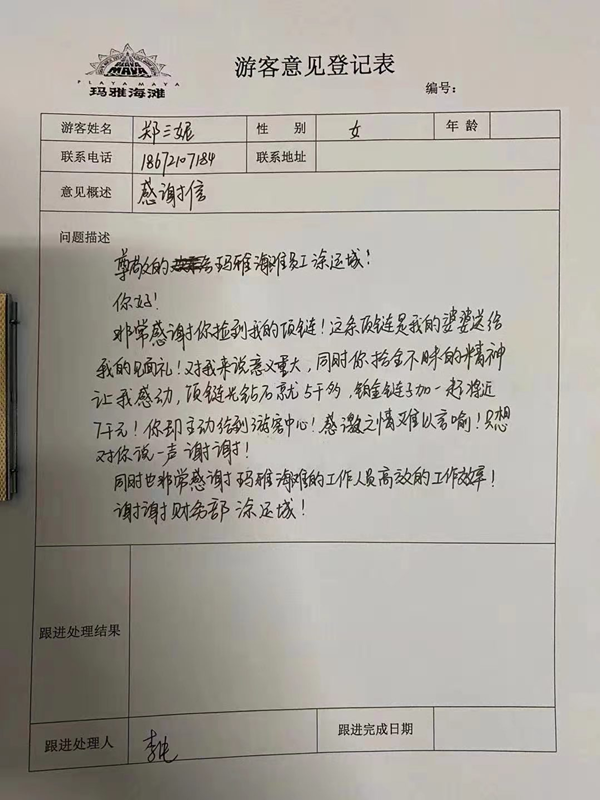 PLAYA MAYA
PLAYA MAYA
玛雅海滩
游客意见登记表
编号：
游客姓名 郑三妮 性 别 女 年 龄
联系电话 18672107184 联系地址
意见概述 感谢信
问题描述
尊敬的玛雅海滩员工涂运城！
你好！
非常感谢你捡到我的项链！这条项链是我的婆婆送给
我的见面礼！对我来说意义重大，同时你拾金不昧的精神
让我感动，项链光钻石就5千多，铂金链子加一起将近
7千元！你却主动给到游客中心！感激之情难以言喻！只想
对你说一声谢谢！
同时也非常感谢玛雅海滩的工作人员高效的工作效率！
谢谢财务部涂运城！
跟进处理结果
跟进处理人 李 跟进完成日期